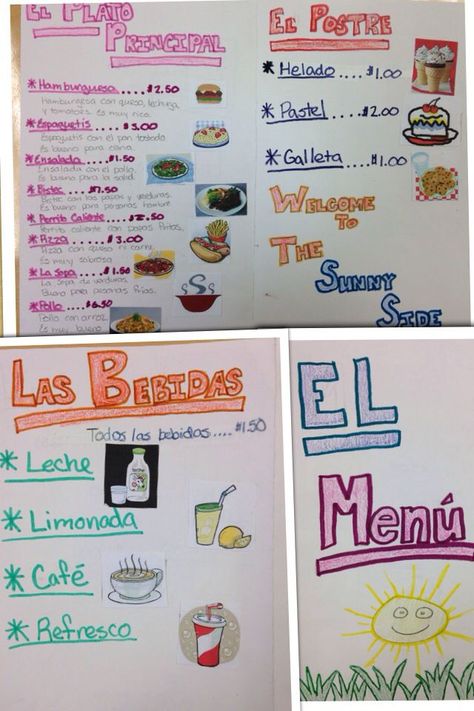 El Plato
Principal
*Hamburguesa....$2.50
Hamburguesa con queso, lechuga
y tomates. Es muy rica.
*Espaguetis....$3.00
Espaguetis con el pan tostada
Es bueno para cena.
*Ensalada....$1.50
Ensalada con el pollo.
Es bueno para la salud.
*Bistec....$7.50
Bistec con las papas y verduras.
Es bueno para personas hambre.
*Perrito Caliente....$2.50
Perrito caliente con papas fritas.
*Pizza....$3.00
Pizza con queso ni carne.
Es muy sabrosa.
*La Sopa....$1.50
La Sopa de verduras
Bueno para personas frías.
*Pollo....$6.50
Pollo con arroz.
Es muy bueno
El Postre
*Helado....$1.00
*Pastel....$2.00
*Galleta....$1.00
Welcome
To
The
Sunny
Side
Las Bebidas
Todos las bebidas....$1.50
*Leche
*Limonada
*Café
*Refresco
EL
Menú